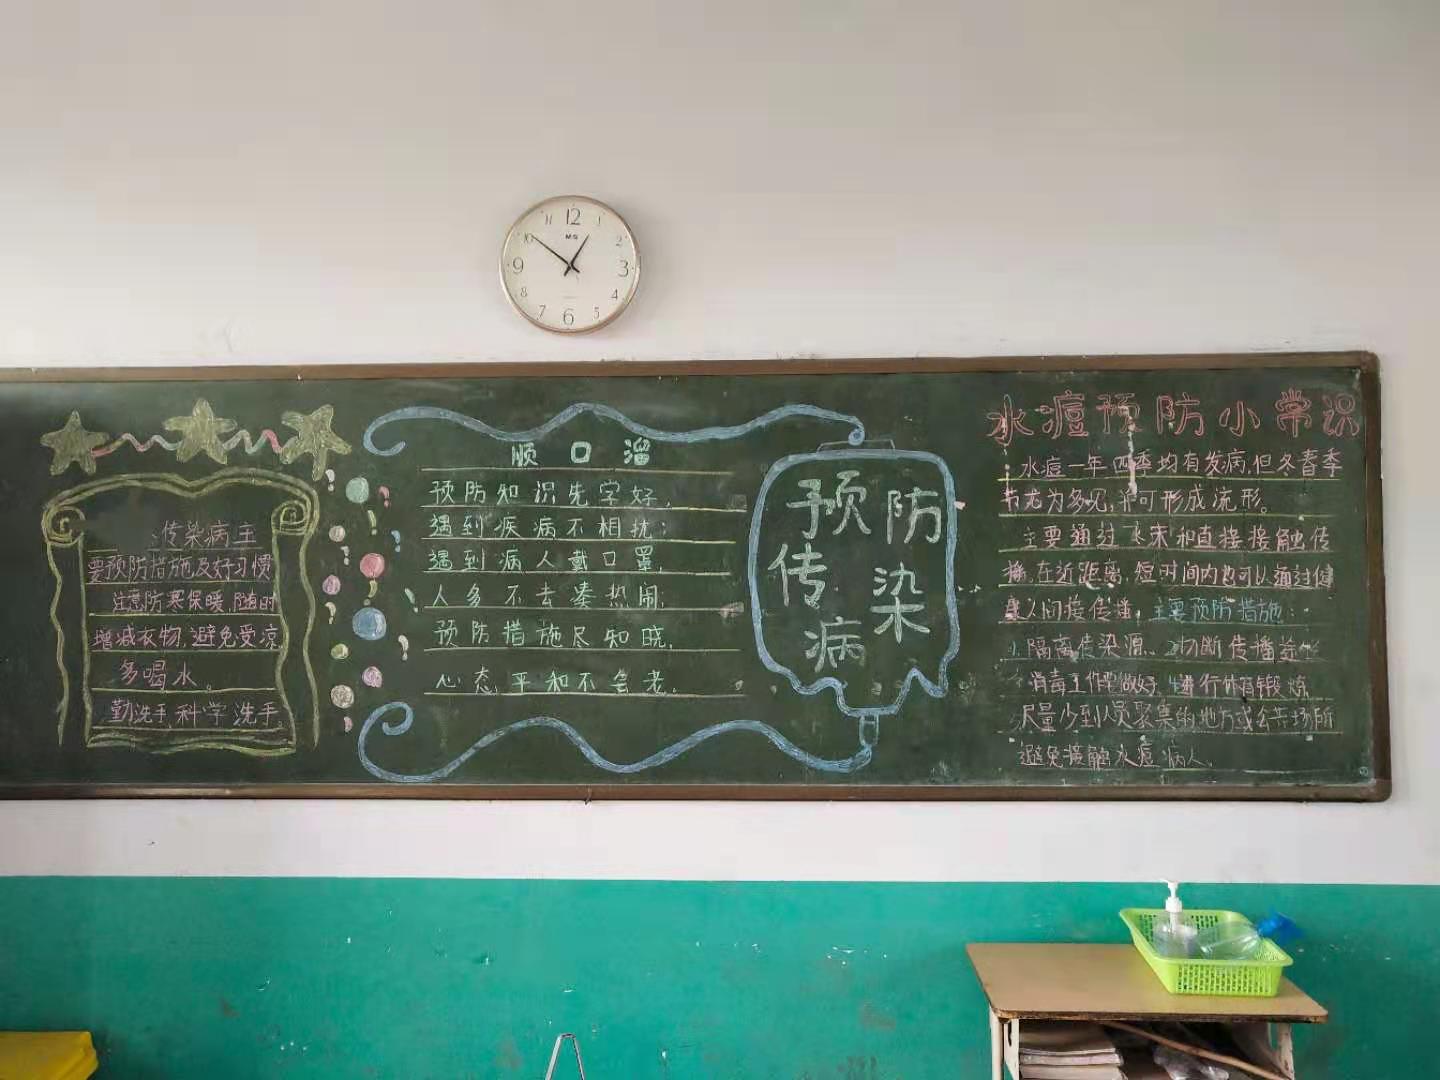 12
1
2
3
4
5
6
7
8
9
10
11
M&G
传染病主
要预防措施及好习惯
注意防寒保暖,随时
增减衣物,避免受凉
多喝水。
勤洗手,科学洗手。
顺口溜
预防知识先学好,
遇到疾病不相扰;
遇到病人戴口罩,
人多不去凑热闹;
预防措施尽知晓,
心态平和不会老。
预防
传染
病
水痘预防小常识
水痘一年四季均有发病,但冬春季
节尤为多见,并可形成流形。
主要通过飞沫和直接接触传
播,在近距离,短时间内也可以通过健
康人间接传播,主要预防措施:
1.隔离传染源、2切断传播途径
消毒工作要做好,4进行体育锻炼
尽量少到人员聚集的地方或公共场所
避免接触水痘病人。